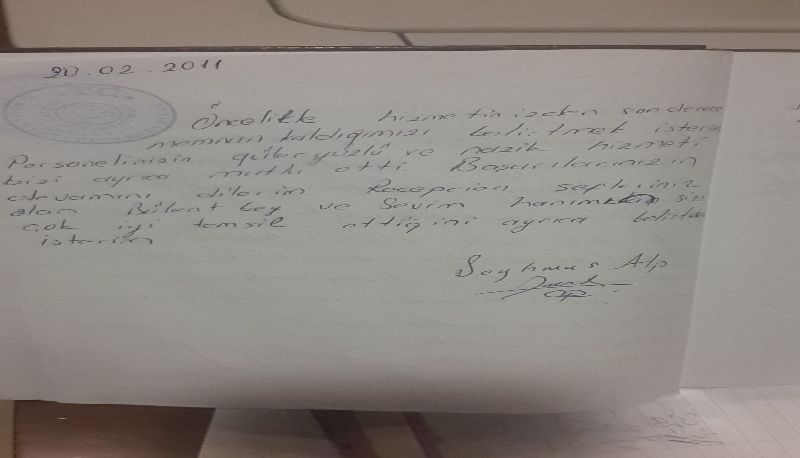 20.02.2011
Öncelikle hizmetinizden son derece
memnun kaldığımızı belirtmek isterim
Personelinizin güler yüzlü ve nazik hizmeti
bizi ayrıca mutlu etti. Başarılarınızın
devamını dilerim Recepcion şefleriniz
olan Bülent bey ve Sevim hanım sizi
çok iyi temsil ettiğini ayrıca belirtmek
isterim
Seyhmus Alp